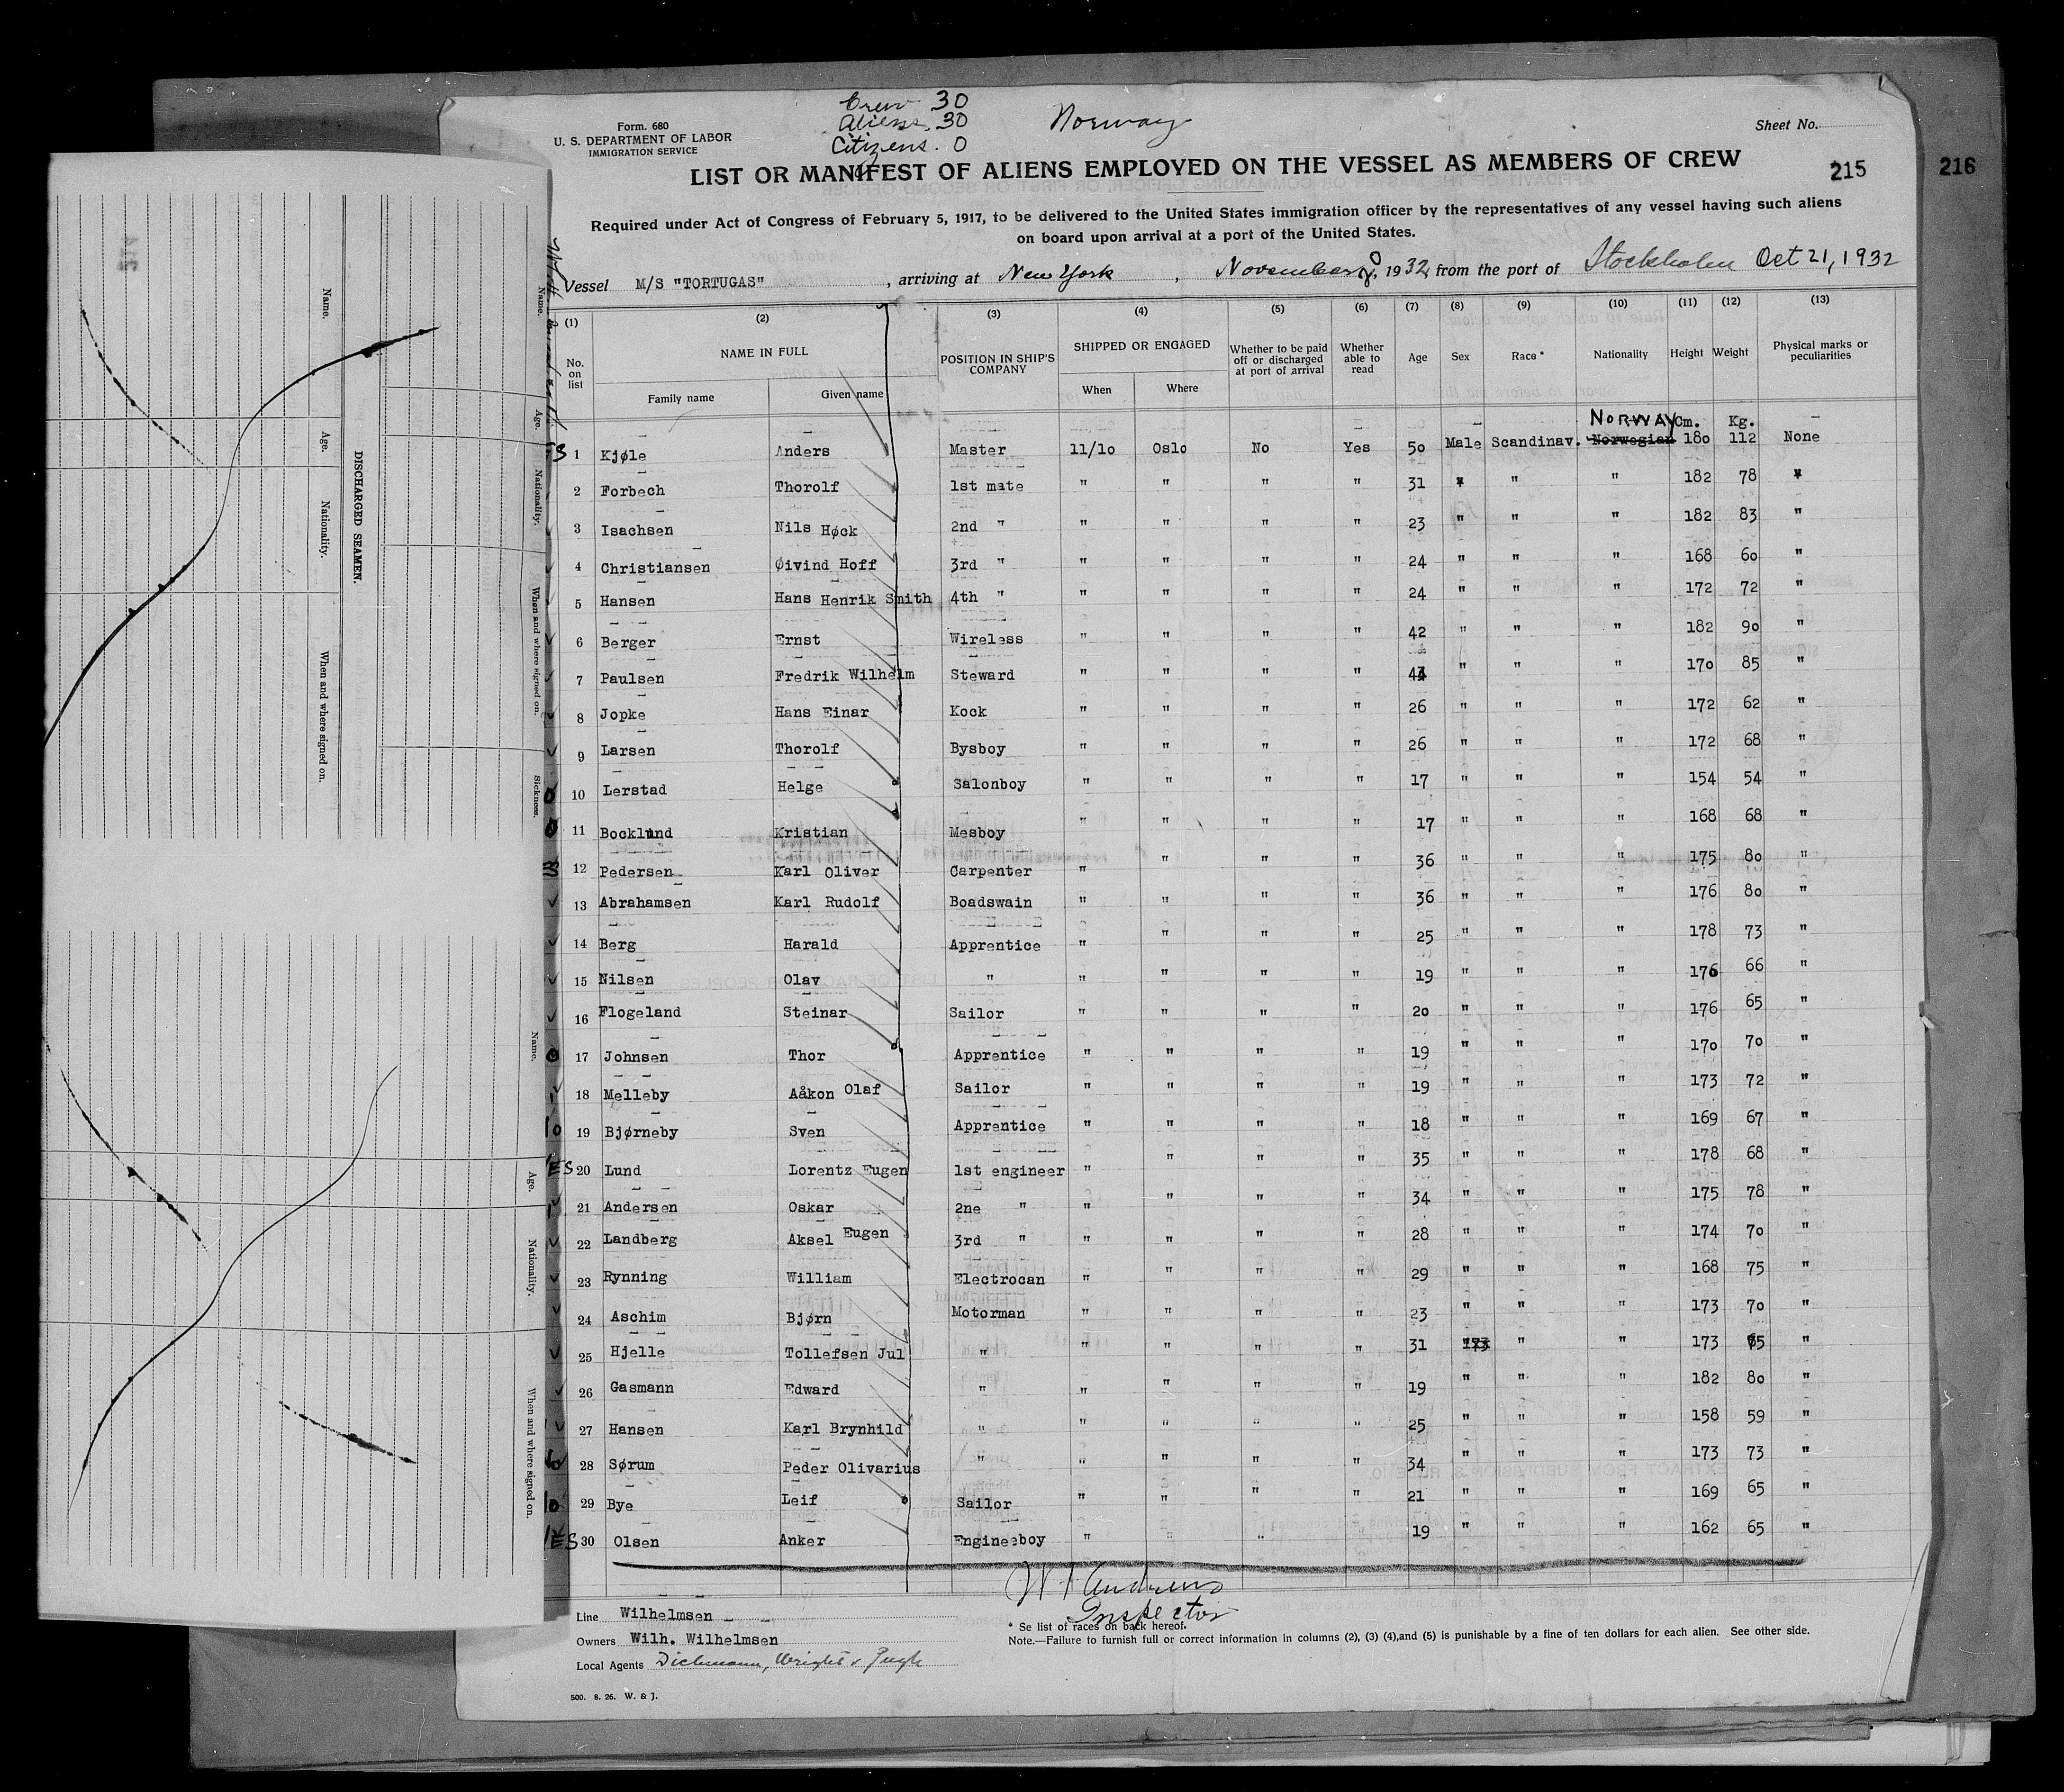 Crew 30
Aliens. 30
Citizens. 0
Norway
Form. 680
U. S. DEPARTMENT OF LABOR
IMMIGRATION SERVICE
Sheet No.
LIST OR MANIFEST OF ALIENS EMPLOYED ON THE VESSEL AS MEMBERS OF CREW
215
216
Required under Act of Congress of February 5, 1917, to be delivered to the United States immigration officer by the representatives of any vessel having such aliens
on board upon arrival at a port of the United States.
Vessel M/S "TORTUGAS", arriving at New York, November, 1932, from the port of Stockholm Oct 21, 1932
(1) (2) (3) (4) (5) (6) (7) (8) (9) (10) (11) (12) (13)
No. on list NAME IN FULL Family name Given name POSITION IN SHIP'S COMPANY SHIPPED OR ENGAGED When Where Whether to be paid off or discharged at port of arrival Whether able to read Age Sex Race * Nationality Height Weight Physical marks or peculiarities
NORWAY Cm. Kg.
1 Kjøle Anders Master 11/10 Oslo No Yes 50 Male Scandinav. Norwegian 180 112 None
2 Forbech Thorolf 1st mate " " " " 31 " " " 182 78 "
3 Isachsen Nils Høck 2nd " " " " " 23 " " " 182 83 "
4 Christiansen Øivind Hoff 3rd " " " " " 24 " " " 168 60 "
5 Hansen Hans Henrik Smith 4th " " " " " 24 " " " 172 72 "
6 Berger Ernst Wireless " " " " 42 " " " 182 90 "
7 Paulsen Fredrik Wilhelm Steward " " " " " " " 170 85 "
8 Jopke Hans Einar Kock " " " " 26 " " " 172 62 "
9 Larsen Thorolf Bysboy " " " " 26 " " " 172 68 "
10 Lerstad Helge Salonboy " " " " 17 " " " 154 54 "
11 Bocklund Kristian Mesboy " " " " 17 " " " 168 68 "
12 Pedersen Karl Oliver Carpenter " " " " 36 " " " 175 80 "
13 Abrahamsen Karl Rudolf Boadswain " " " " 36 " " " 176 80 "
14 Berg Harald Apprentice " " " " 25 " " " 178 73 "
15 Nilsen Olav " " " " " 19 " " " 176 66 "
16 Flogeland Steinar Sailor " " " " 20 " " " 176 65 "
17 Johnsen Thor Apprentice " " " " 19 " " " 170 70 "
18 Melleby Aåkon Olaf Sailor " " " " 19 " " " 173 72 "
19 Bjørneby Sven Apprentice " " " " 18 " " " 169 67 "
20 Lund Lorentz Eugen 1st engineer " " " " 35 " " " 178 68 "
21 Andersen Oskar 2ne " " " " " 34 " " " 175 78 "
22 Landberg Aksel Eugen 3rd " " " " " 28 " " " 174 70 "
23 Rynning William Electrocan " " " " 29 " " " 168 75 "
24 Aschim Bjørn Motorman " " " " 23 " " " 173 70 "
25 Hjelle Tollefsen Jul " " " " " 31 173 " " 173 75 "
26 Gasmann Edward " " " " " 19 " " " 182 80 "
27 Hansen Karl Brynhild " " " " " 25 " " " 158 59 "
28 Sørum Peder Olivarius " " " " " 34 " " " 173 73 "
29 Bye Leif Sailor " " " " 21 " " " 169 65 "
30 Olsen Anker Engineeboy " " " " 19 " " " 162 65 "
Inspector
Line Wilhelmsen
Owners Wilh. Wilhelmsen
Local Agents Dichmann, Wright & Pugh
* Se list of races on back hereof.
Note.—Failure to furnish full or correct information in columns (2), (3) (4),and (5) is punishable by a fine of ten dollars for each alien. See other side.
500. 8. 26. W. & J.
DISCHARGED SEAMEN.
Name. Age. Nationality. When and where signed on.
Name. Age. Nationality. When and where signed on. Sickness.
Name. Age. Nationality. When and where signed on.